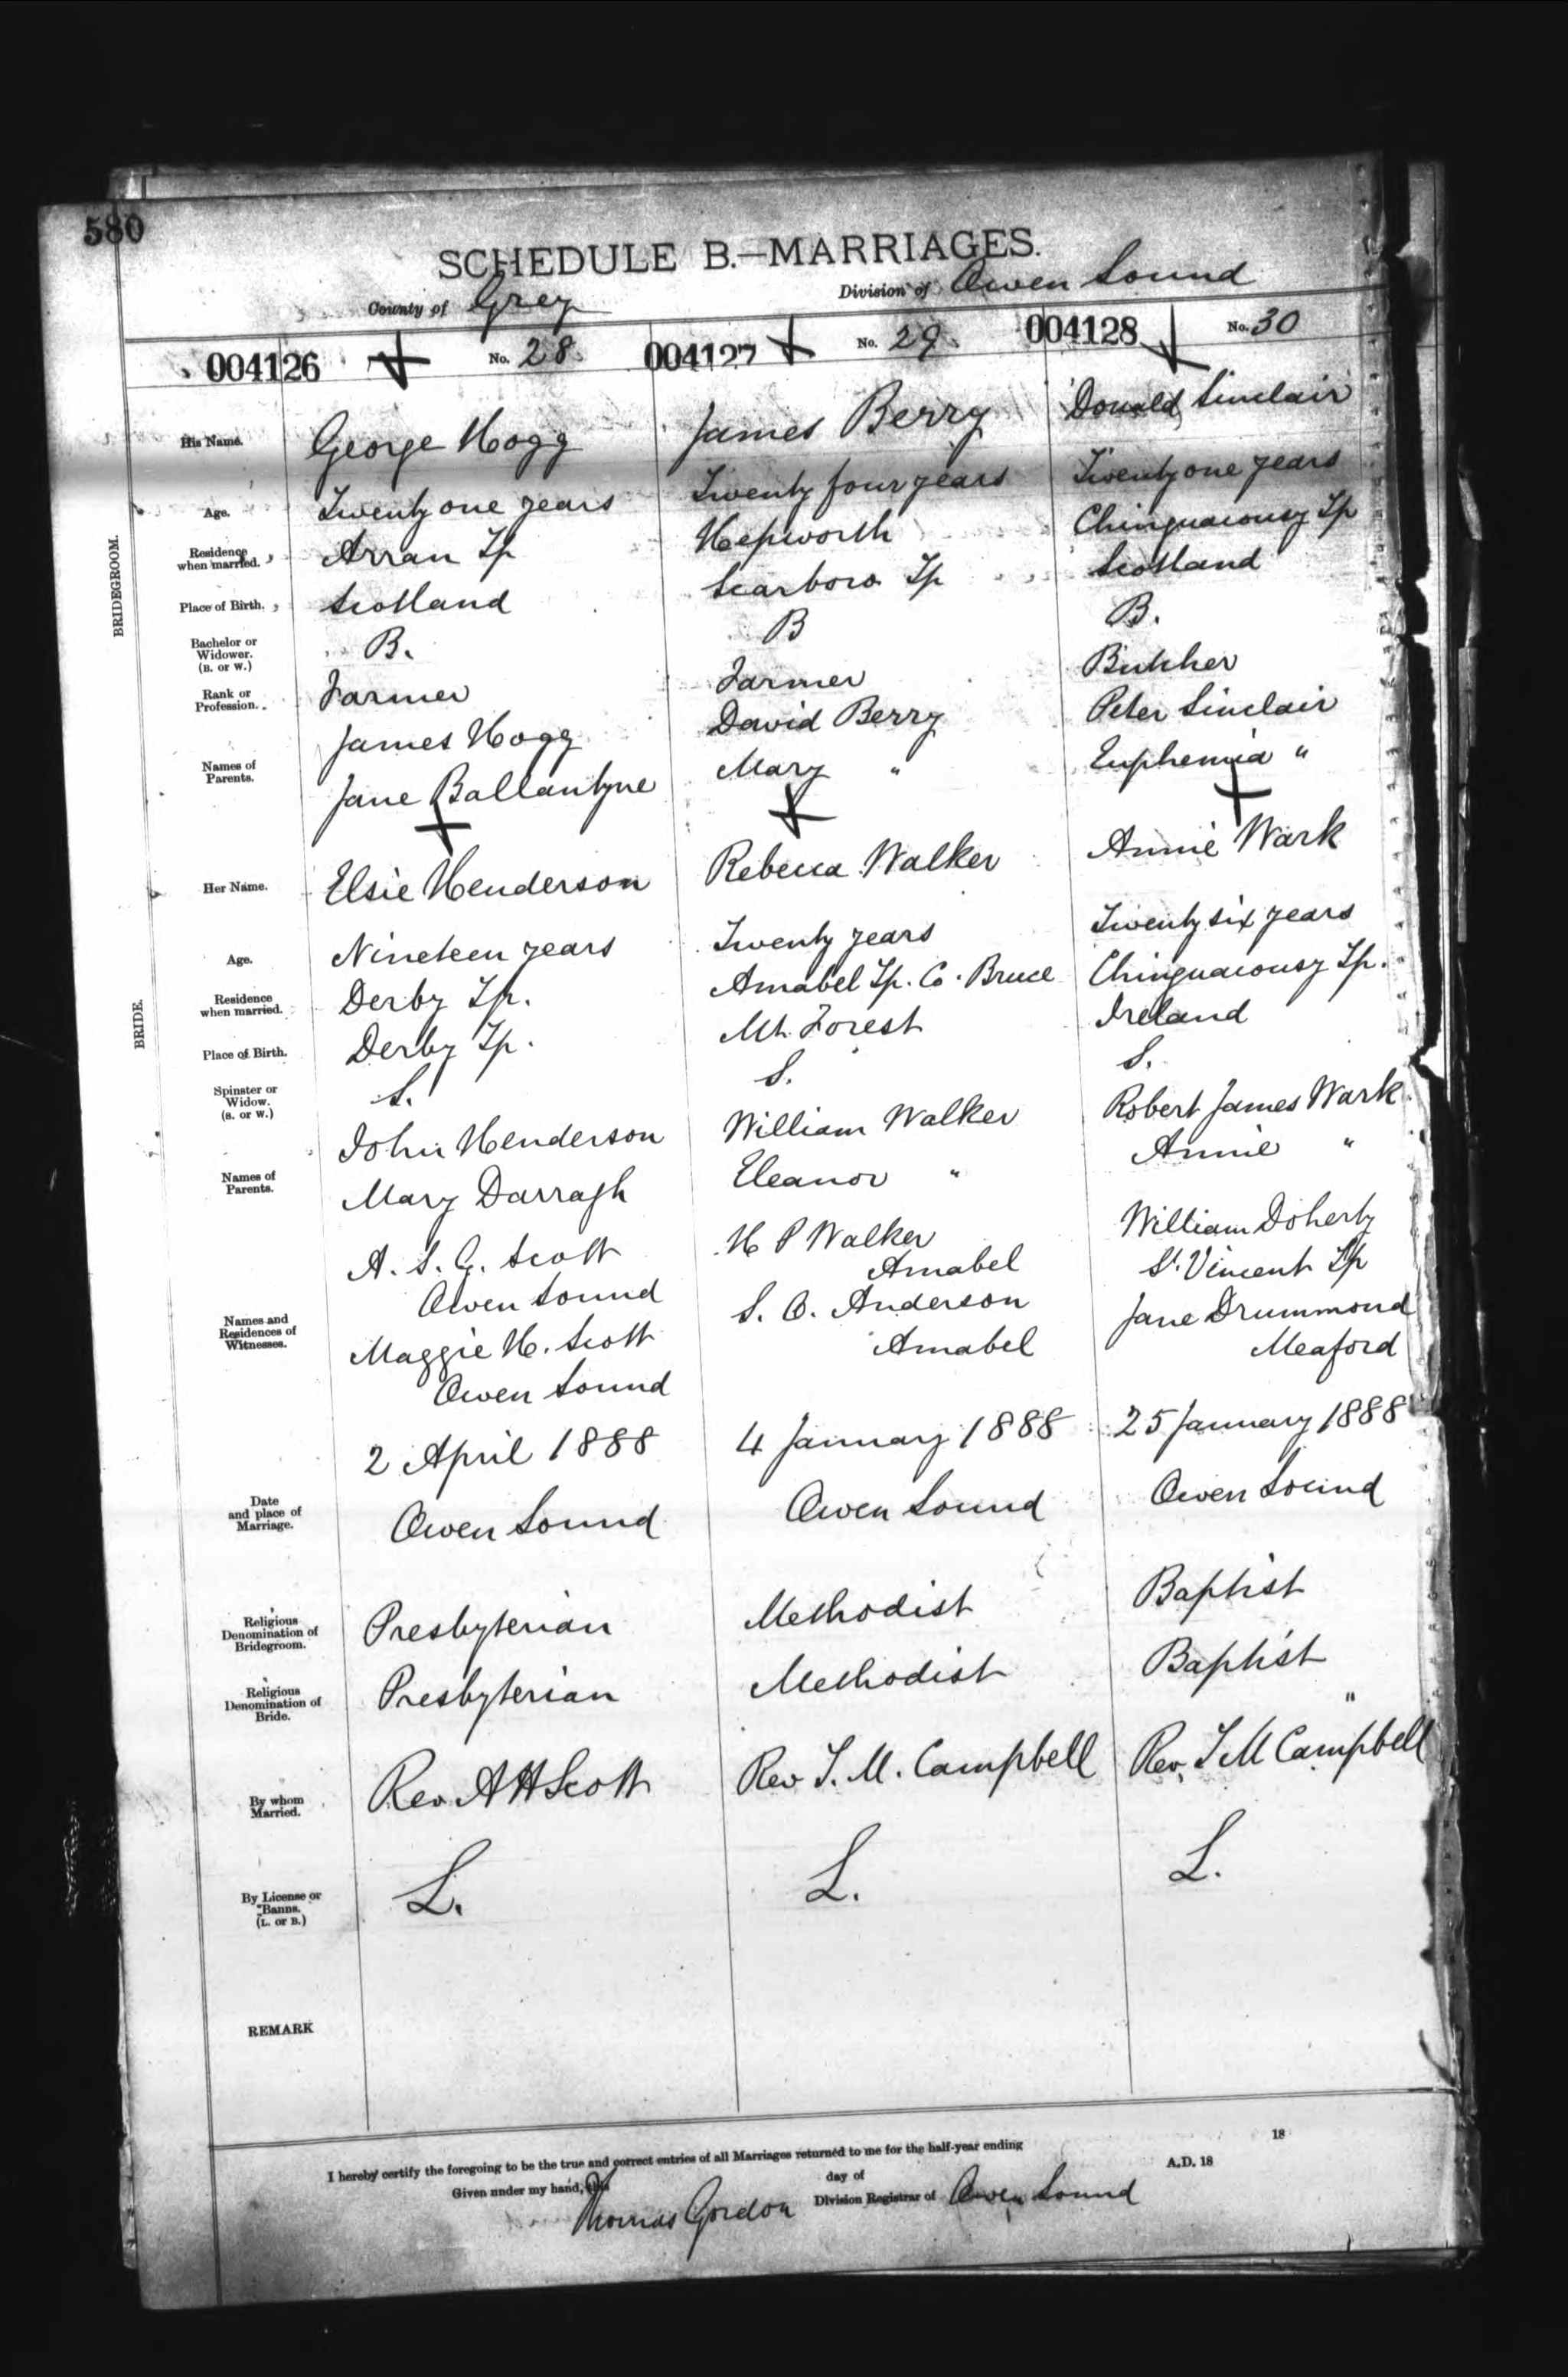 580
SCHEDULE B.—MARRIAGES.
County of Grey Division of Owen Sound
004126 No. 28. 004127 No. 29. 004128 No. 30
BRIDEGROOM.
His Name. George Hogg James Berry Donald Sinclair
Age. Twenty one years Twenty four years Twenty one years
Residence when married. Arran Tp Hepworth Chinguacousy Tp
Place of Birth. Scotland Scarboro Tp Scotland
Bachelor or Widower. (B. or W.) B. B B.
Rank or Profession. Farmer Farmer Butcher
Names of Parents. James Hogg David Berry Peter Sinclair
Jane Ballantyne Mary " Euphemia "
BRIDE.
Her Name. Elsie Henderson Rebecca Walker Annie Wark
Age. Nineteen years Twenty years Twenty six years
Residence when married. Derby Tp. Amabel Tp. Co. Bruce Chinguacousy Tp.
Place of Birth. Derby Tp. Mt. Forest Ireland
Spinster or Widow. (S. or W.) S. S. S.
Names of Parents. John Henderson William Walker Robert James Wark
Mary Darragh Eleanor " Annie "
Names and Residences of Witnesses. A. S. G. Scott H P Walker William Doherty
Owen Sound Amabel St. Vincent Tp
Maggie H. Scott S. C. Anderson Jane Drummond
Owen Sound Amabel Meaford
Date and place of Marriage. 2 April 1888 4 January 1888 25 January 1888
Owen Sound Owen Sound Owen Sound
Religious Denomination of Bridegroom. Presbyterian Methodist Baptist
Religious Denomination of Bride. Presbyterian Methodist Baptist
"
By whom Married. Rev A H Scott Rev T. M. Campbell Rev. T M Campbell
By License or Banns. (L. or B.) L. L. L.
REMARK
I hereby certify the foregoing to be the true and correct entries of all Marriages returned to me for the half-year ending 18
Given under my hand, this day of A.D. 18
Thomas Gordon Division Registrar of Owen Sound